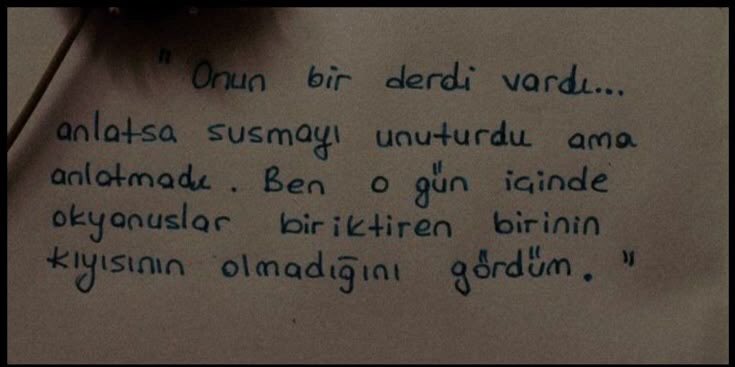 " Onun bir derdi vardı...
anlatsa susmayı unuturdu ama
anlatmadı. Ben o gün içinde
okyanuslar biriktiren birinin
kıyısının olmadığını gördüm. "